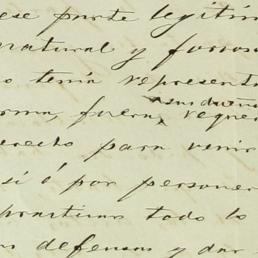 ese parte legitim
natural y forzos
o tenia represent
a sus dueño
rma, fuera, reque
erecho para venir
si ó por personer
practicar todo lo
defensas y dar